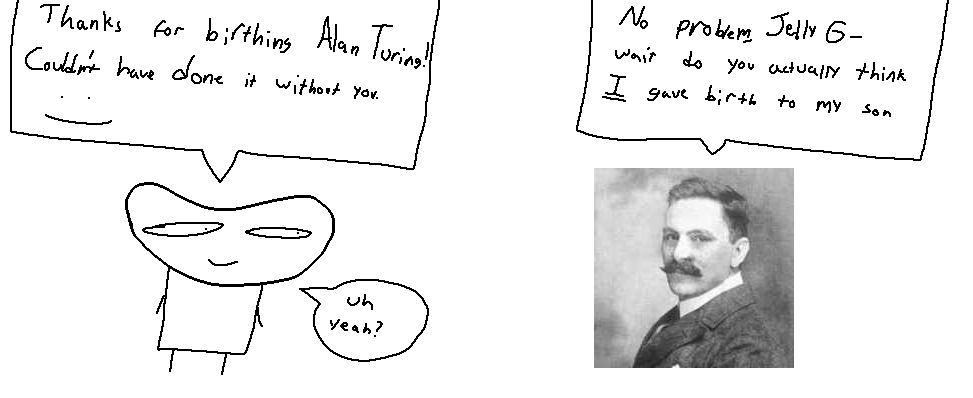 Thanks for birthing Alan Turing!
Couldn't have done it without you.
No problem Jelly G-
wait do you actually think
I gave birth to my son
uh
yeah?